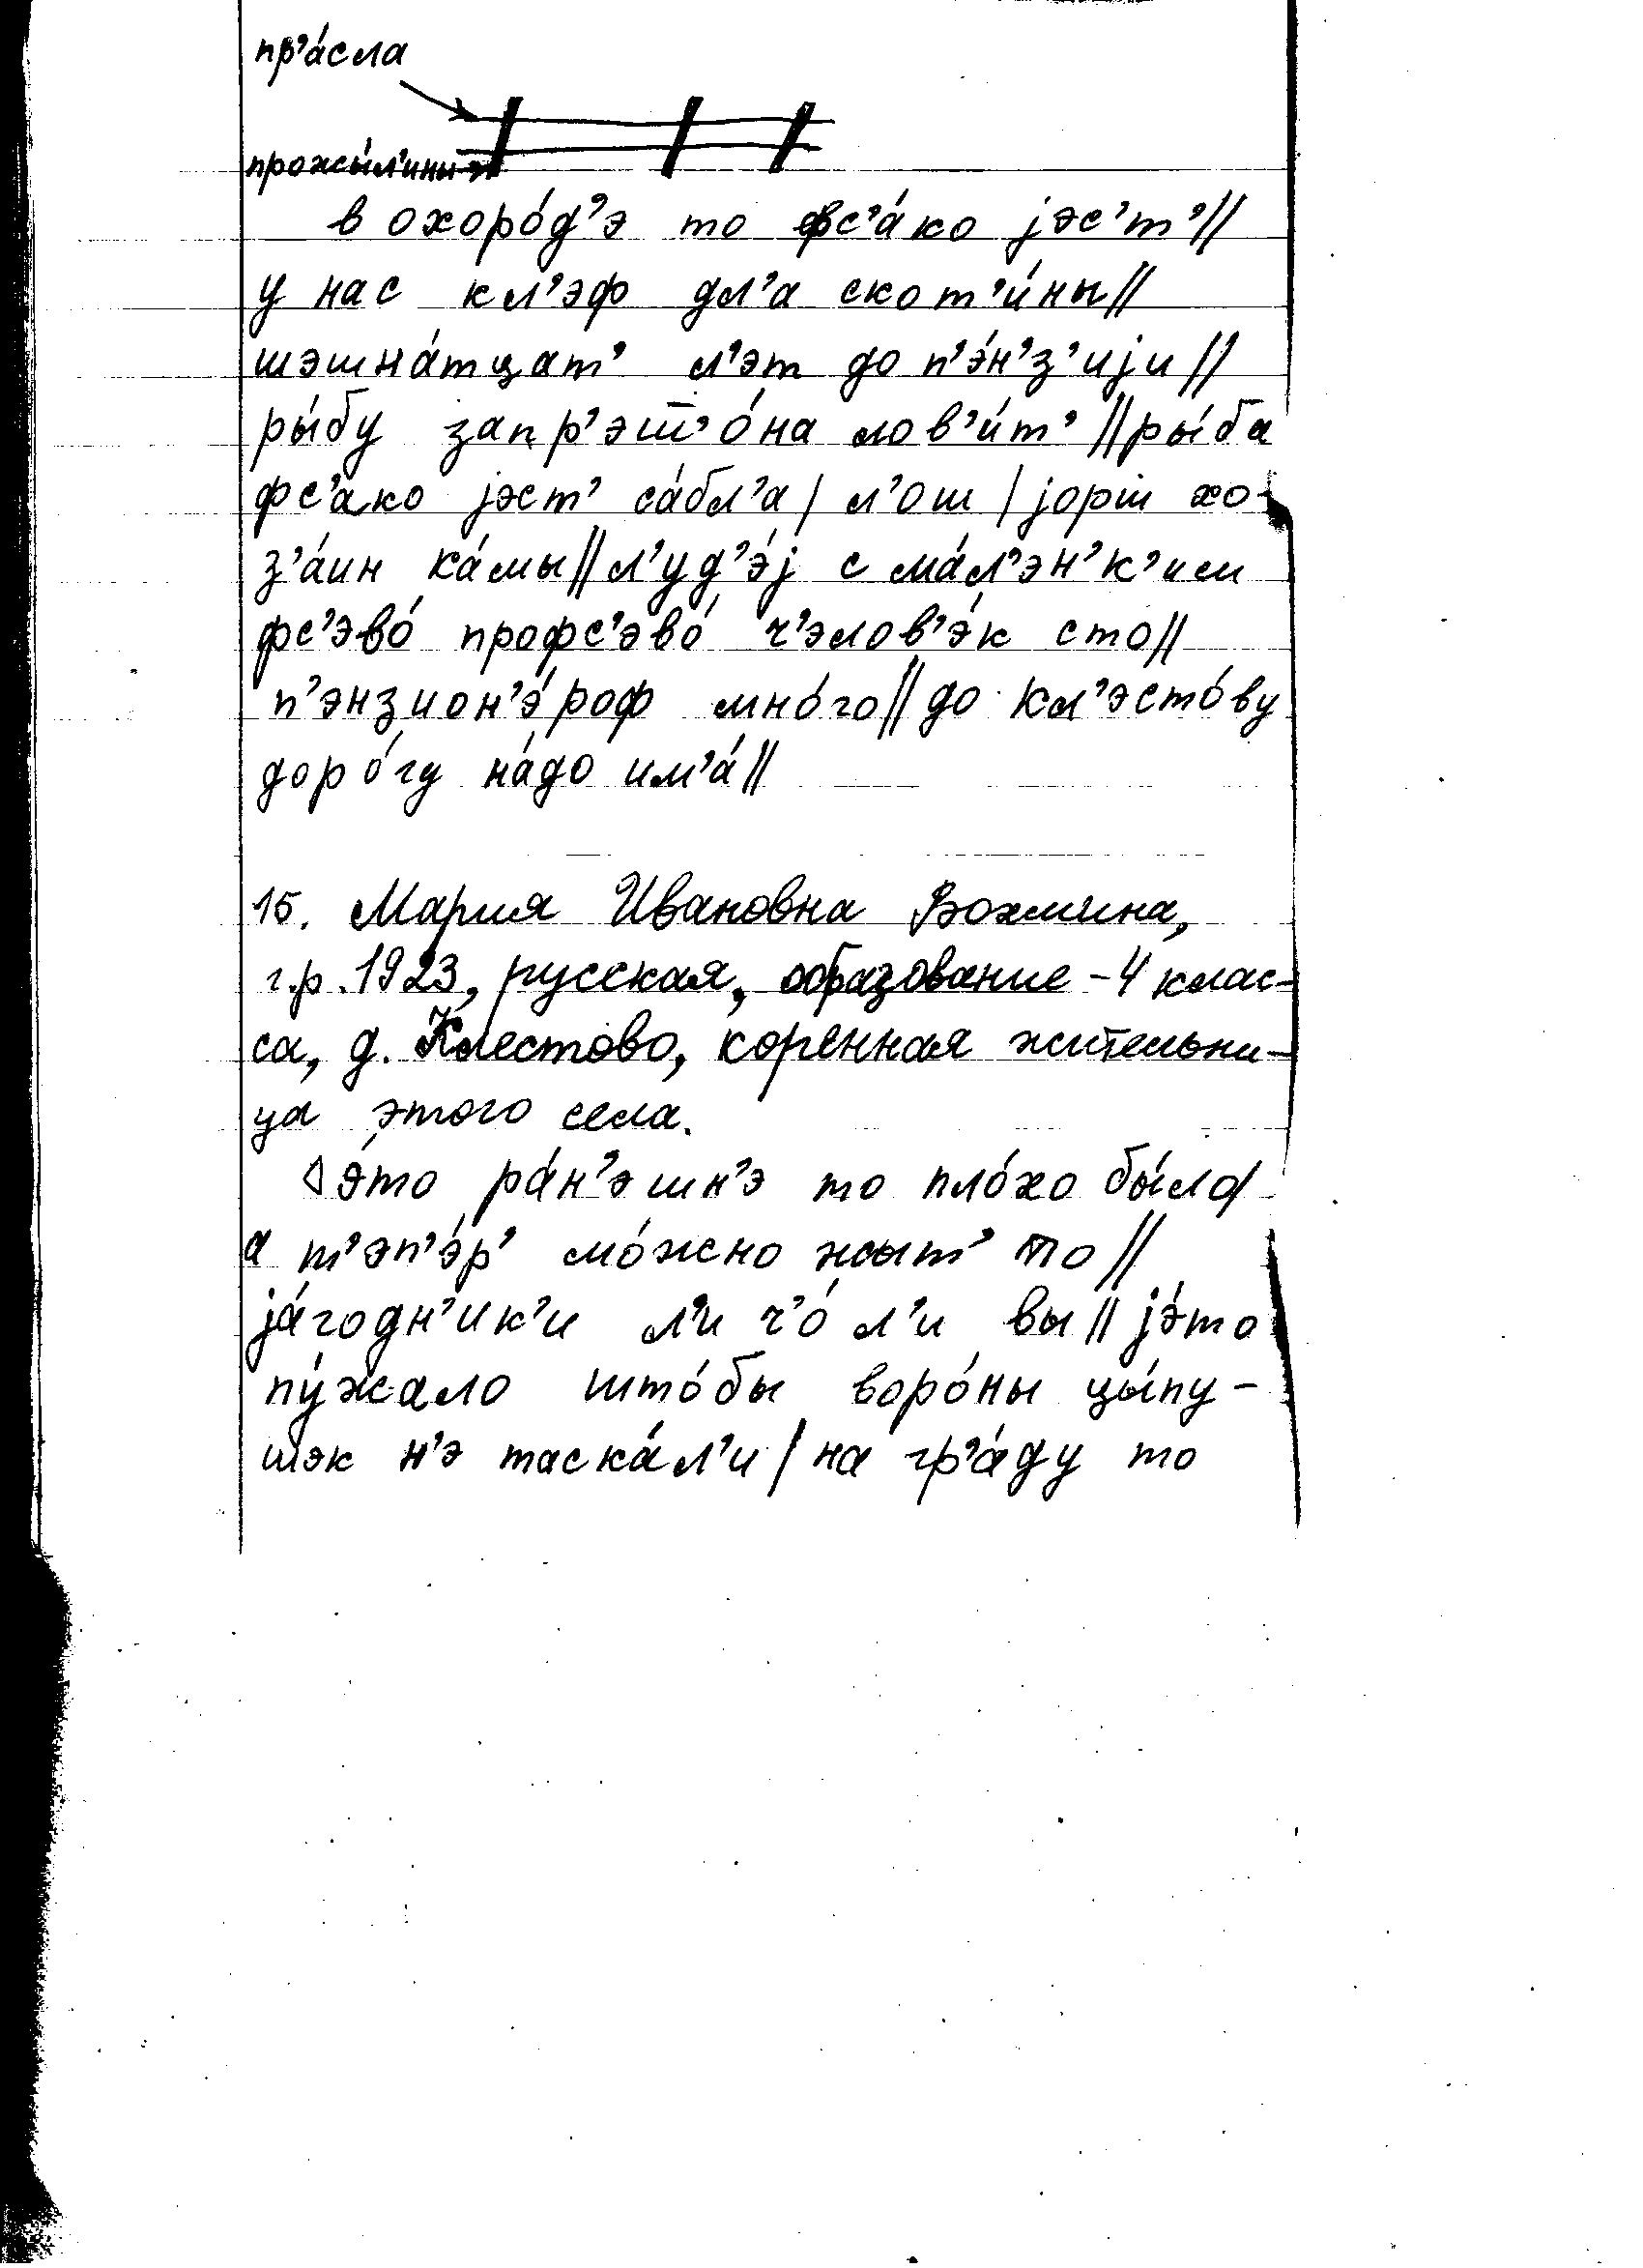 пр’а́сла
прожы́л’ины
в охоро́д’э то фс’а́ко jэс’т’//
у нас кл’эф дл’а скот’и́ны//
шэшна́тцат’ л’эт до п’э́н’з’иjи//
ры́бу запр’эш’о́на лов’и́т’ // ры́ба
фс’а́ко jэст’ са́бл’а / л’ош / jорш хо-
з’а́ин ка́мы // л’уд’э́j с ма́л’эн’к’им
фс’эво́ профс’эво́ ч’элов’э́к сто //
п’энзион’э́роф мно́го // до кл’эсто́ву
доро́гу на́до им’а́ //
15. Мария Ивановна Вохмина,
г.р. 1923, русская, образование – 4 клас-
са, д. Клестово, коренная жительни-
ца этого села.
э́то ра́н’эшн’э то пло́хо бы́ло/
а т’эп’э́р’ мо́жно жыт’ то //
jа́годн’ик’и л’и ч’о́ л’и вы // jэ́то
пу́жало што́бы воро́ны цы́пу-
шэк н’э таска́л’и / на гр’а́ду то